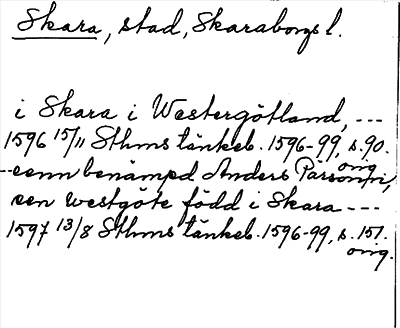 Skara, stad, Skaraborgs l.
i Skara i Westergötland, ---
1596 15/11 Sthms tänkeb. 1596-99, s. 90.
orig.
--- benämpd Anders Pärsson,
een westgöte född i Skara ---
1597 13/8 Sthms tänkeb. 1596-99, s. 151.
orig.